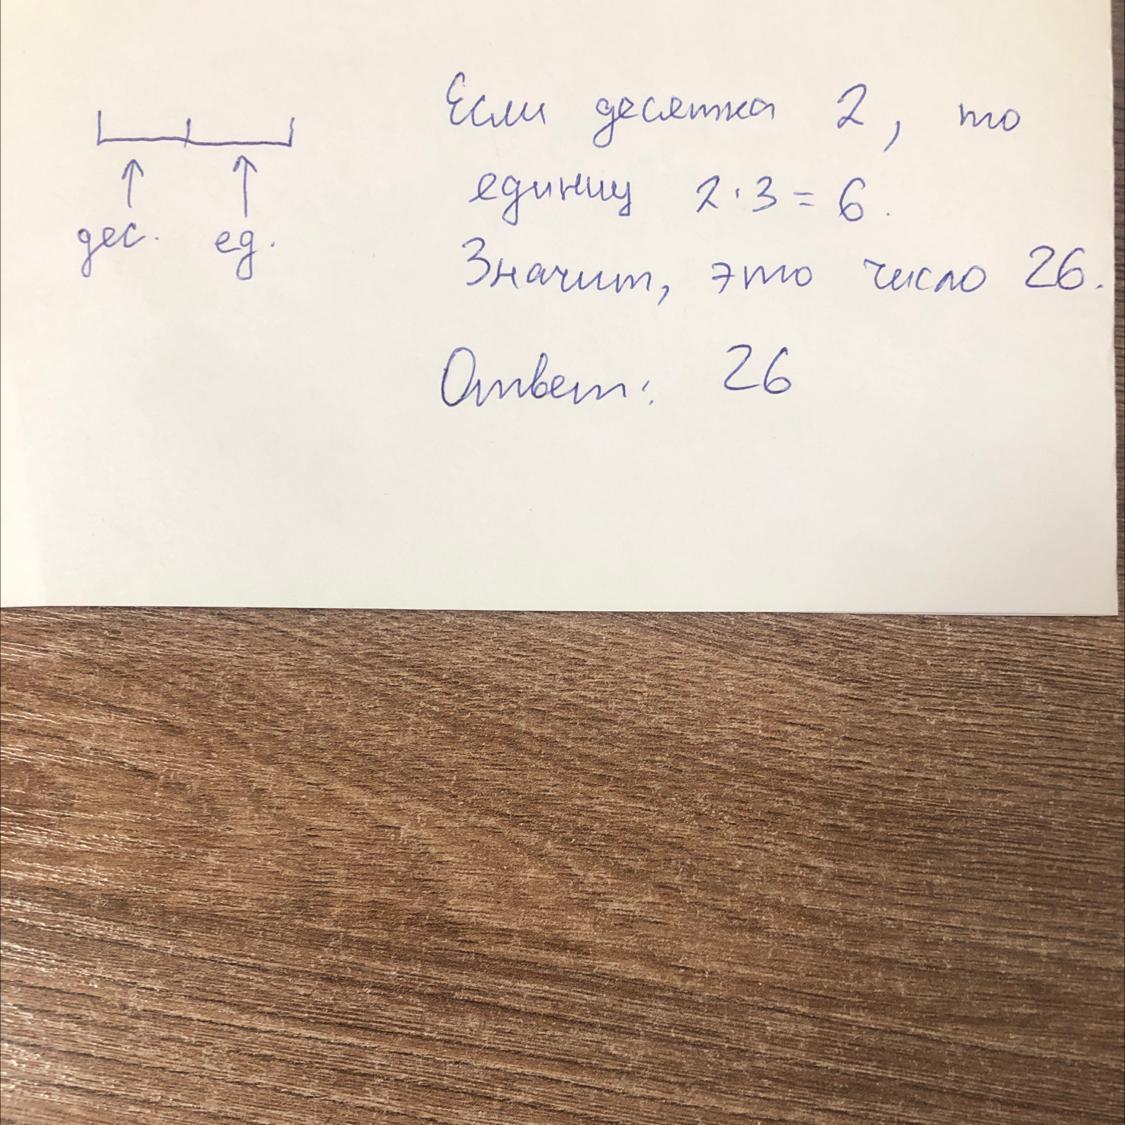 дес. ед.
Если десятка 2, то
единиц 2·3=6.
Значит, это число 26.
Ответ: 26